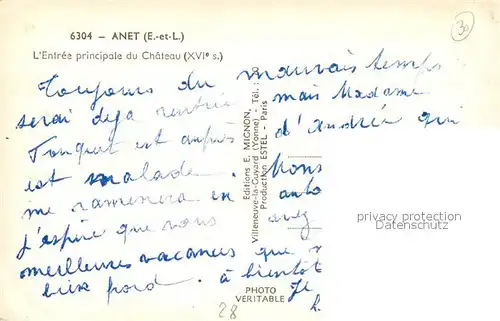 6304 — ANET (E.-et-L.)
30
L'Entrée principale du Château (XVIe s.)
Toujours du mauvais temps
serai deja rentrée mais Madame
Fouquet est auprès d'Andrée qui
est malade. Mons
me ramenera en auto
j'espère que vous avez
meilleures vacances que
fait froid. à bientôt
Je
Editions E. MIGNON,
Villeneuve-la-Guyard (Yonne) - Tél. : 30
Production ESTEL - Paris
privacy protection
Datenschutz
PHOTO
VERITABLE
28